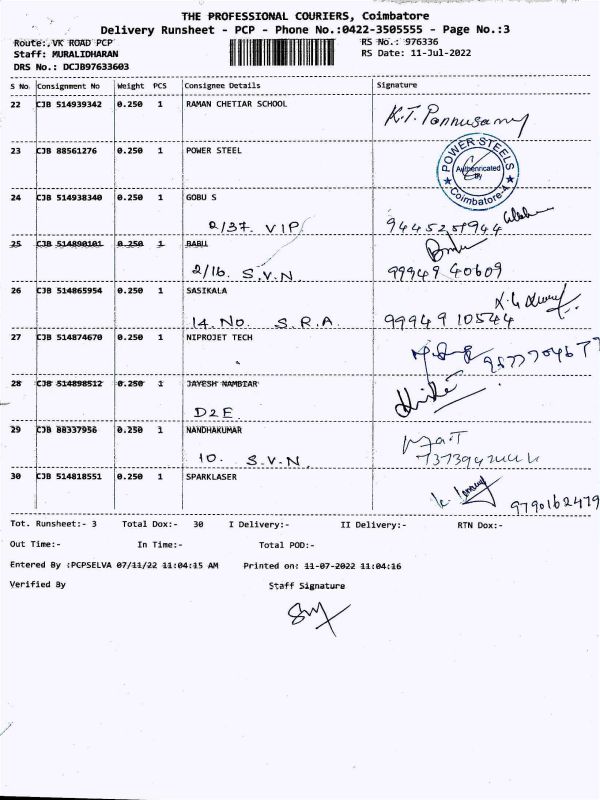 THE PROFESSIONAL COURIERS, Coimbatore
Delivery Runsheet - PCP - Phone No.:0422-3505555 - Page No.:3
Route:,VK ROAD PCP RS No.: 976336
Staff: MURALIDHARAN RS Date: 11-Jul-2022
DRS No.: DCJB97633603
S No. Consignment No Weight PCS Consignee Details Signature
22 CJB 514939342 0.250 1 RAMAN CHETIAR SCHOOL
K.T. Ponnusamy
23 CJB 88561276 0.250 1 POWER STEEL
POWER STEELS
Authenticated
By
Coimbatore-4
24 CJB 514938340 0.250 1 GOBU S
2/37. VIP 9445251944
25 CJB 514890101 0.250 1 BABU
2/16. S.V.N. 99949 40609
26 CJB 514865954 0.250 1 SASIKALA
14. NO. S.R.A. 99949 10544
27 CJB 514874670 0.250 1 NIPROJET TECH
28 CJB 514898512 0.250 1 JAYESH NAMBIAR
D2E.
29 CJB 88337956 0.250 1 NANDHAKUMAR
10. S.V.N.
30 CJB 514818551 0.250 1 SPARKLASER
9790162479
Tot. Runsheet:- 3 Total Dox:- 30 I Delivery:- II Delivery:- RTN Dox:-
Out Time:- In Time:- Total POD:-
Entered By :PCPSELVA 07/11/22 11:04:15 AM Printed on: 11-07-2022 11:04:16
Verified By Staff Signature